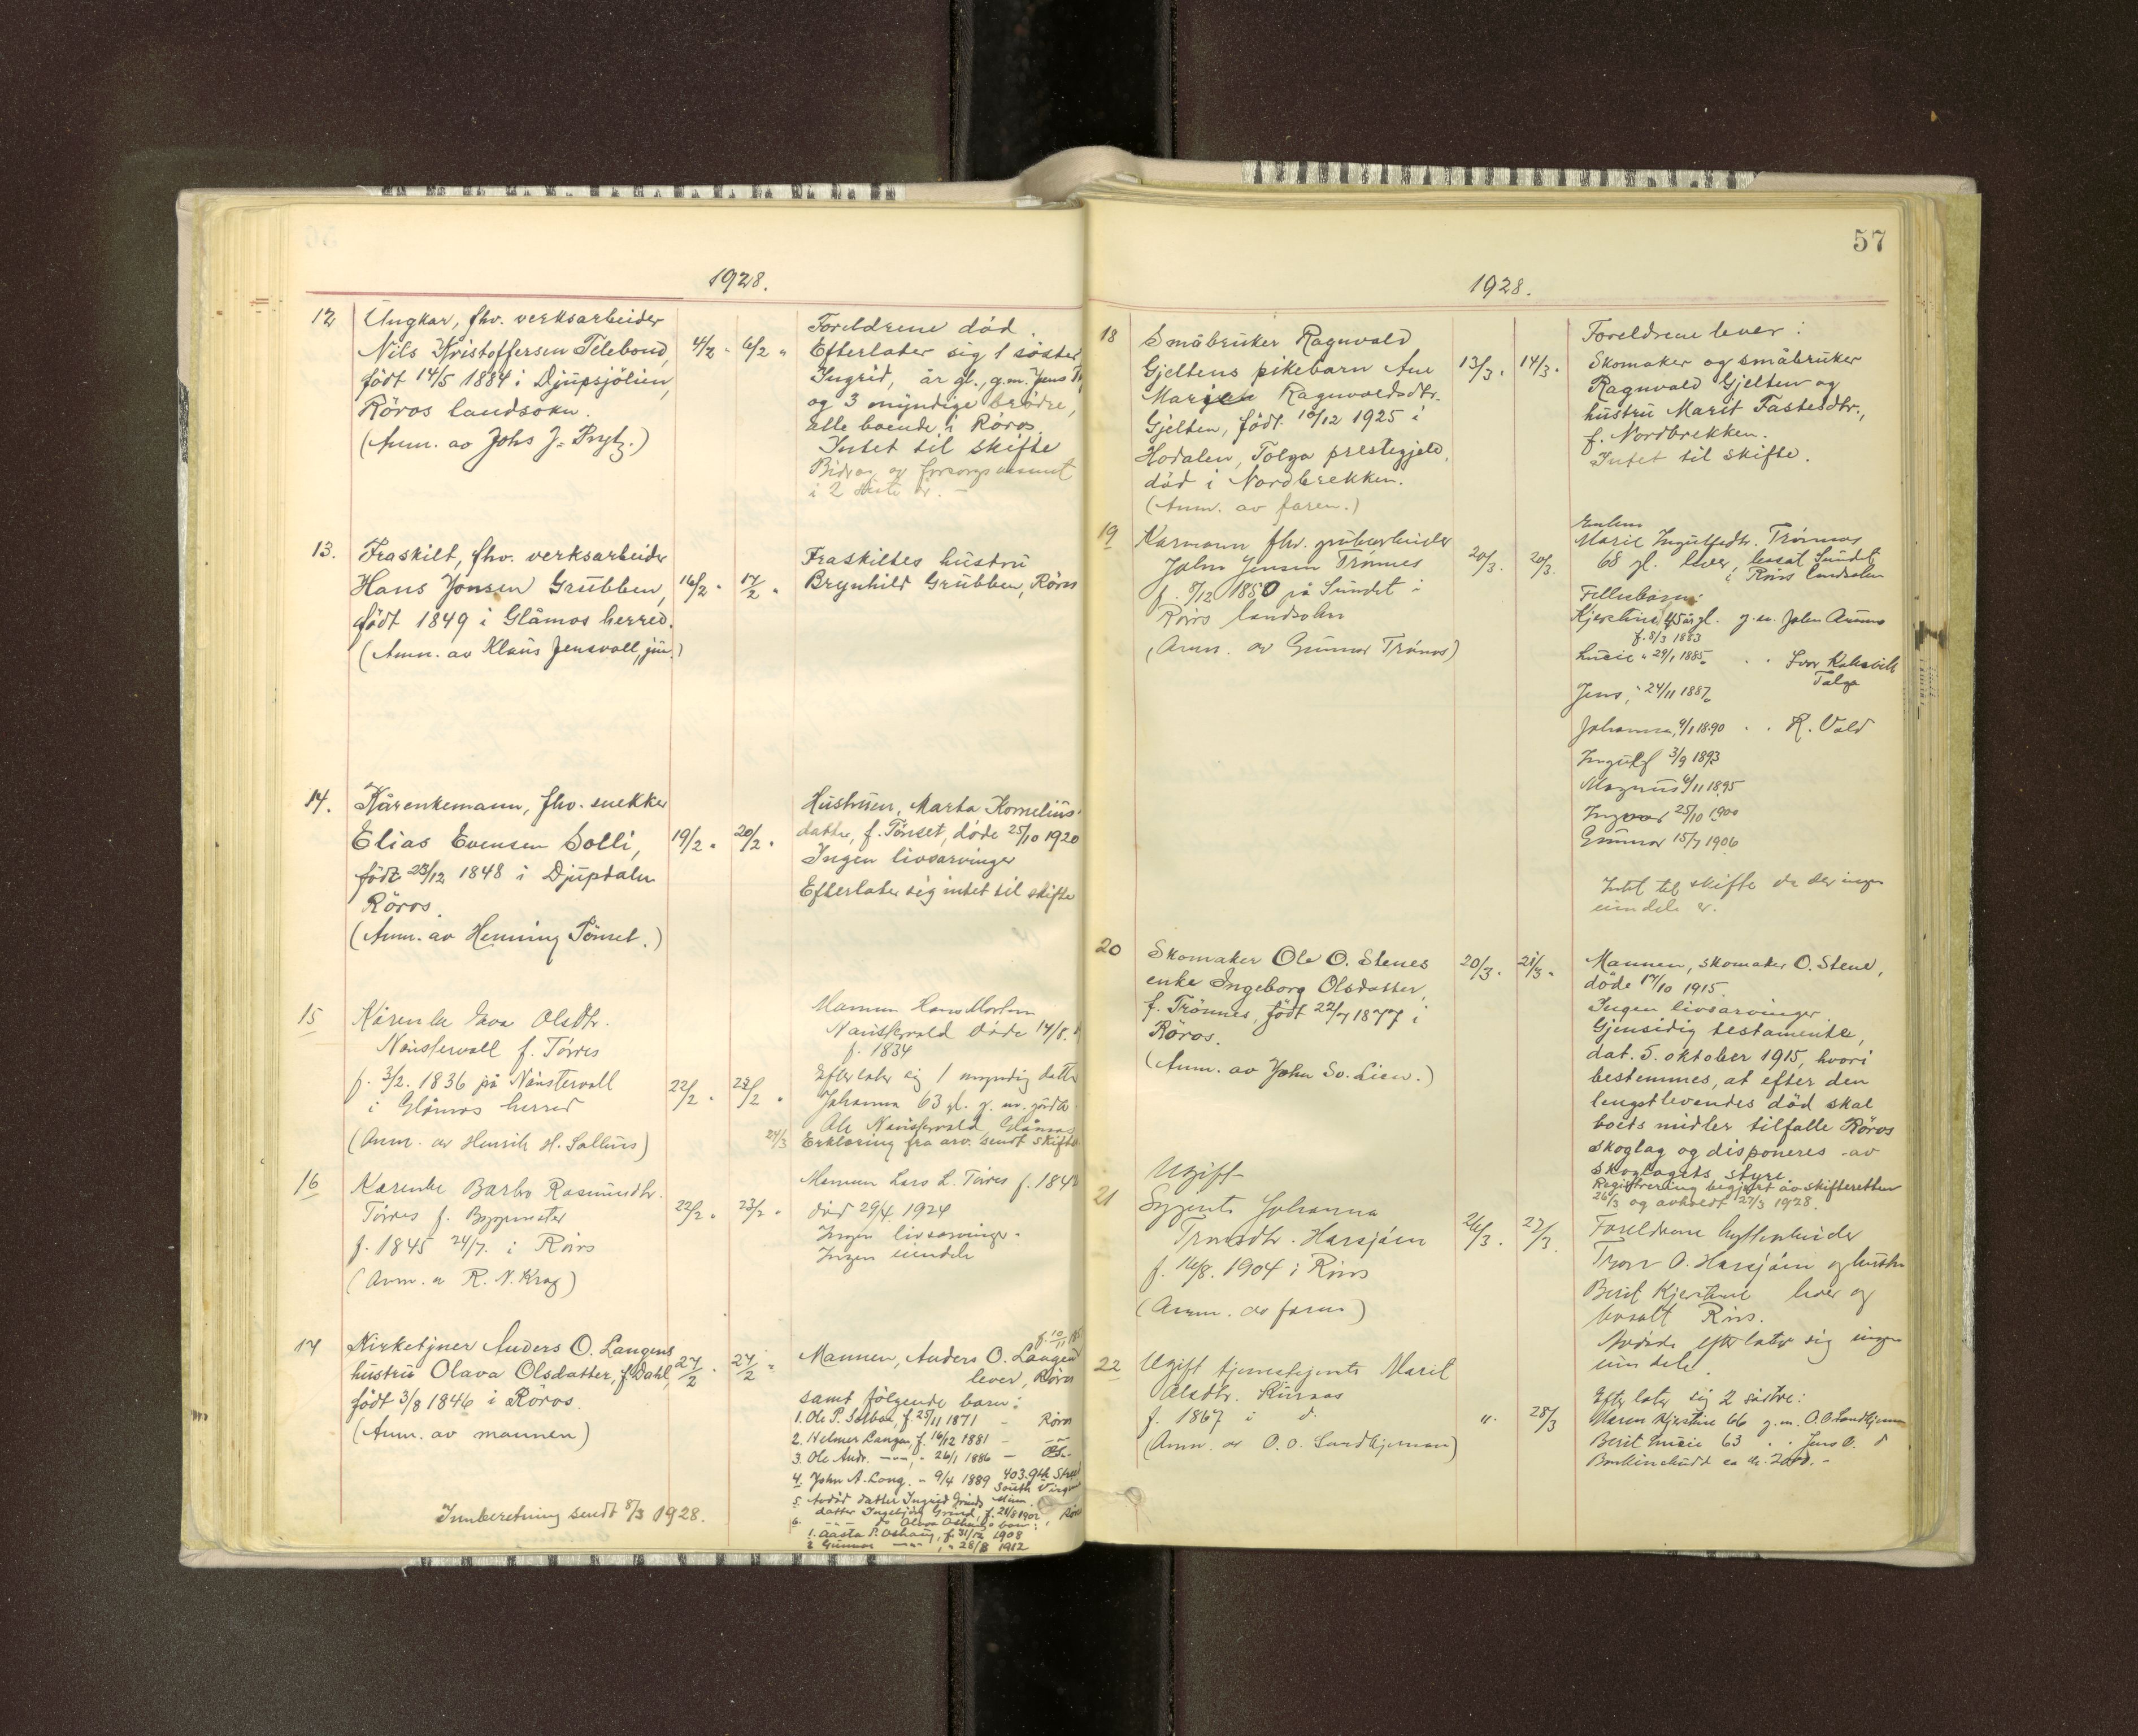 1928.
12 Ungkar, fhv. verksarbeider
Nils Kristoffersen Telebond, 4/2 - 6/2 "
født 14/5 1884 i Djupsjölien,
Röros landsokn.
(Anm. av Johs J. Prytz.)
Foreldrene død.
Efterlater sig 1 söster
Ingrid, år gl., g.m. Jens
og 3 myndige brödre,
alle boende i Röros.
Intet til skifte
Bidrag av forsorgsvesenet
i 2 siste år. -
13. Fraskilt, fhv. verksarbeider
Hans Jonsen Grubben, 16/2 - 17/2 "
født 1849 i Glåmos herred.
(Anm. av Klaus Jensvoll, jun.)
Fraskiltes hustru
Brynhild Grubben, Röros
14. Kårenkemann, fhv. snekker
Elias Evensen Solli, 19/2 " 20/2 "
født 23/12 1848 i Djupdalen
Röros.
(Anm. av Henning Tönset.)
Hustruen, Marta Kornelius-
datter, f. Tönset, døde 25/10 1920
Ingen livsarvinger
Efterlater sig intet til skifte
15 Kårenke Olsdtr.
Nanstervoll f. Törres
f. 3/2. 1836 på Nänstervoll 22/2 "
i Glåmos herred
(Anm. av Henrik H. Sollius)
Mannen Hans Morten
døde 14/8.
f. 1834
Efterlater sig 1 myndig datter
Johanna 63 gl. g. m.
Ole Glåmos
24/3 Erklæring fra arv. sendt skifte
16 Karenke Barbro Rasmusdtr.
Törres f. 22/2 " 23/2 "
f. 1845 24/7. i Röros
(Anm. a R. N. Krag)
Mannen Lars L. Törres f. 184
död 29/4. 1924
Ingen livsarvinger.
Ingen eiendele
17 Kirketjner Anders O. Langens
hustru Olava Olsdatter, f. Dahl, 27/2 - 27/2 "
født 3/8 1846 i Röros.
(Anm. av mannen)
Mannen, Anders O. Langen
lever, Röros
samt følgende barn:
1. Ole P. f. 25/11 1871 - Röros
2. Helmer Langen, f. 14/12 1881 -
3. Ole Andr. -"- " 26/1 1886 -
4. John A. Long, - 9/4 1889 403.9th Street
South
5. Avdød datter Ingrid Grinds Minn.
datter Ingebjörg Grind, f. 21/8 1902, Röros
6. do Olava barn:
1. Aasta P. Oshaug, f. 31/12 1908
2 Gunnar -"- , " 28/8 1912
Innberetning sendt 8/3 1928.
57
1928.
18 Småbruker Ragnvald
Gjeltens pikebarn Ane 13/3. 14/3.
Ragnvaldsdtr.
Gjelten, født 10/12 1925 i
Hodalen, Tolga prestegjeld,
død i Nordbrekken.
(Anm. av faren.)
Foreldrene lever:
Skomaker og småbruker
Ragnvald Gjelten og
hustru Marit Fastesdtr.,
f. Nordbrekken.
Intet til skifte.
19 Karmann fhv. grubearbeider
John Jensen Trönnes 20/3. 20/3.
f. 8/12 1850 på Sundet i
Röros landsokn
(Anm. av Gunnar Trönnes)
Enken
Marie Ingulfsdtr. Trönnes
68 gl. lever, bosat Sundet
i Röros landsokn
Fellesbarn:
Kjerstine 45 år gl. g. m. John
f. 8/3 1883
Lucie " 29/1 1885. " " Ivar
Tolga
Jens, " 24/11 1887.
Johanna, 9/1 1890 " " R. Vold
Ingulf 3/9 1893
Magnus 6/11 1895
Ingvar 25/10 1900
Gunnar 15/7 1906
Intet til skifte da der ingen
eiendele er.
20 Skomaker Ole O. Stenes 20/3. 21/3.
enke Ingeborg Olsdatter,
f. Trönnes, født 22/7 1877 i
Röros.
(Anm. av John Sv. Lien.)
Mannen, skomaker O. Stene,
døde 17/10 1915.
Ingen livsarvinger
Gjensidig testamente,
dat. 5. oktober 1915, hvori
bestemmes, at efter den
lengstlevendes död skal
boets midler tilfalle Röros
skoglag og disponeres av
skoglagets styre.
Registrering begjært av skifteretten
26/3 og avholdt 27/3 1928.
21 Ugift
Sypent Johanna
Tronsdtr. Harsjöen 26/3. 27/3.
f. 16/8. 1904 i Röros
(Anm. av faren)
Foreldrene hyttearbeider
Tron O. Harsjöen og hustru
Berit Kjerstine lever og
bosatt Röros.
Avdøde efterlater sig ingen
eiendele.
22 Ugift tjenestejente Marit
Olsdtr. Kuraas
f. 1867 i d. ". 28/3
(Anm. av O. O. Sandkjernan)
Efterlater sig 2 søstre:
Maren Kjerstine 66 g. m. O. O. Sandkjernan
Berit Lucie 63 " " Jens O. d
Bankinskudd ca kr. 200. -